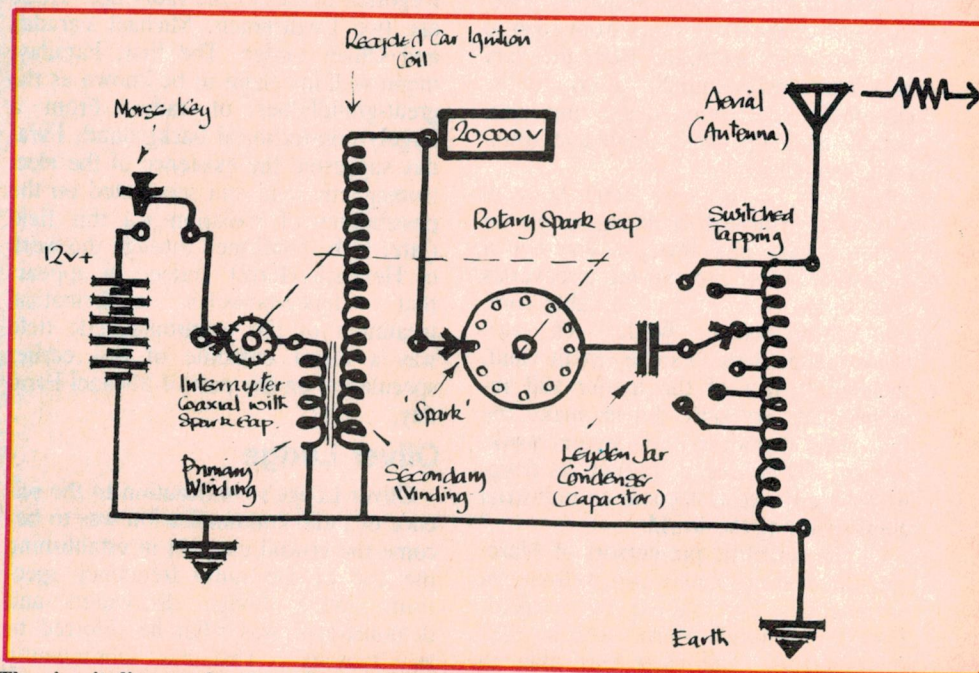 Recycled Car Ignition
Coil
Morse Key
20,000 v
Aerial
(Antenna)
Rotary Spark Gap
Switched
Tapping
12v+
Interrupter
Coaxial with
Spark Gap.
'Spark'
Primary
Winding
Secondary
Winding
Leyden Jar
Condenser
(Capacitor)
Earth